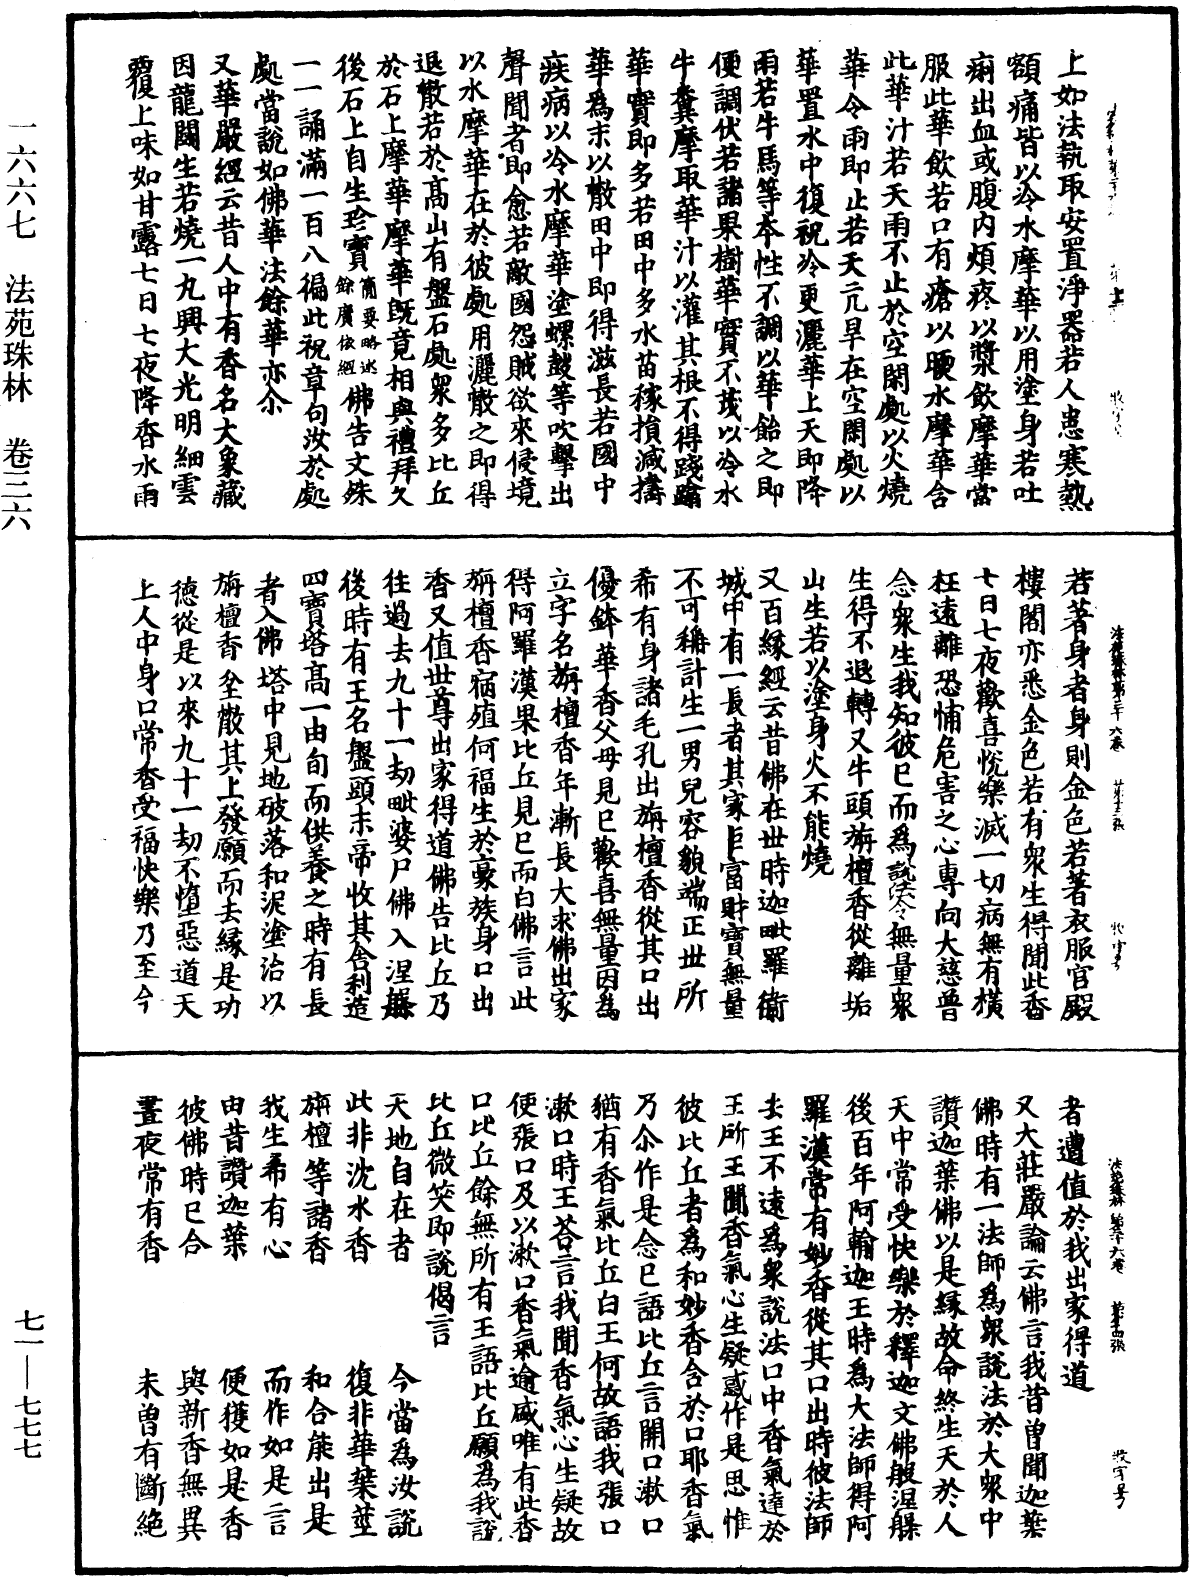 上如法執取安置淨器若人患寒熱
額痛皆以冷水摩華以用塗身若吐
痢出血或腹內煩疼以漿飲摩華當
服此華飲若口有瘡以暖水摩華含
此華汁若天雨不止於空閑處以火燒
華令雨即止若天亢旱在空閑處以
華置水中復祝冷更灑華上天即降
雨若牛馬等本性不調以華飴之即
便調伏若諸果樹華實不茂以冷水
牛糞摩取華汁以灌其根不得踐蹹
華實即多若田中多水苗稼損減擣
華為末以散田中即得滋長若國中
疾病以冷水摩華塗螺鼓等吹擊出
聲聞者即愈若敵國怨賊欲來侵境
以水摩華在於彼處用灑散之即得
退散若於高山有盤石處衆多比丘
於石上摩華摩華既竟相與禮拜久
後石上自生珍寶簡要略述餘廣依經佛告文殊
一一誦滿一百八徧此祝章句汝於處
處當說如佛華法餘華亦尒
又華嚴經云昔人中有香名大象藏
因龍鬪生若燒一丸興大光明細雲
覆上味如甘露七日七夜降香水雨
若著身者身則金色若著衣服宮殿
樓閣亦悉金色若有衆生得聞此香
七日七夜歡喜悅樂滅一切病無有橫
枉遠離恐怖危害之心專向大慈普
念衆生我知彼已而為說法令無量衆
生得不退轉又牛頭旃檀香從離垢
山生若以塗身火不能燒
又百緣經云昔佛在世時迦毗羅衛
城中有一長者其家巨富財寶無量
不可稱計生一男兒容貌端正世所
希有身諸毛孔出旃檀香從其口出
優鉢華香父母見已歡喜無量因為
立字名旃檀香年漸長大求佛出家
得阿羅漢果比丘見已而白佛言此
旃檀香宿殖何福生於豪族身口出
香又值世尊出家得道佛告比丘乃
往過去九十一劫毗婆尸佛入涅槃
後時有王名盤頭末帝收其舍利造
四寶塔高一由旬而供養之時有長
者入佛塔中見地破落和泥塗治以
旃檀香坌散其上發願而去緣是功
德從是以來九十一劫不墮惡道天
上人中身口常香受福快樂乃至今
者遭值於我出家得道
又大莊嚴論云佛言我昔曾聞迦葉
佛時有一法師為衆說法於大衆中
讚迦葉佛以是緣故命終生天於人
天中常受快樂於釋迦文佛般涅槃
後百年阿輸迦王時為大法師得阿
羅漢常有妙香從其口出時彼法師
去王不遠為衆說法口中香氣達於
王所王聞香氣心生疑惑作是思惟
彼比丘者為和妙香含於口耶香氣
乃尒作是念已語比丘言開口漱口
猶有香氣比丘白王何故語我張口
漱口時王荅言我聞香氣心生疑故
使張口及以漱口香氣逾盛唯有此香
口比丘餘無所有王語比丘願為我說
比丘微笑即說偈言
天地自在者　今當為汝說
此非沈水香　復非華葉莖
旃檀等諸香　和合能出是
我生希有心　而作如是言
由昔讚迦葉　便獲如是香
彼佛時已合　與新香無異
晝夜常有香　未曾有斷絕
一六六七　法苑珠林　卷三六
七一—七七七